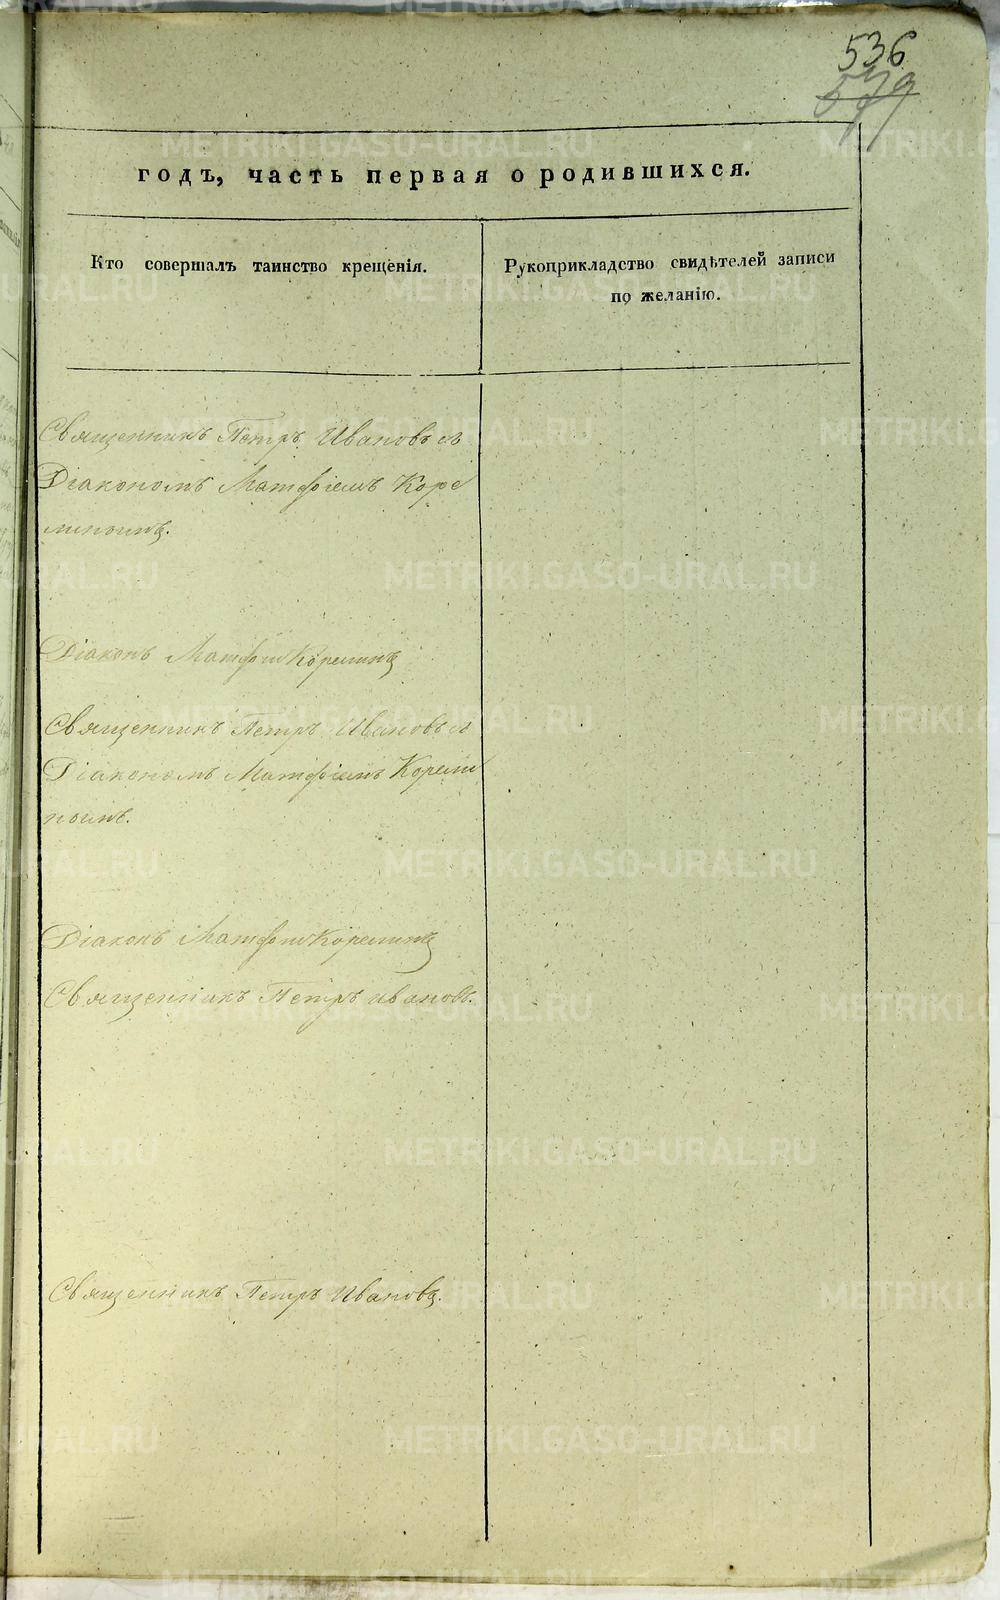 536
579
годъ, часть первая о родившихся.
Кто совершалъ таинство крещенія.
Рукоприкладство свидѣтелей записи
по желанію.
Священникъ Петръ Ивановъ съ
Діакономъ Матѳіемъ Коре
линымъ.
Діаконъ Матѳій Корелинъ
Священникъ Петръ Ивановъ съ
Діакономъ Матѳіемъ Корели
нымъ.
Діаконъ Матѳій Корелинъ
Священникъ Петръ Ивановъ.
Священникъ Петръ Ивановъ.
METRIKI.GASO-URAL.RU